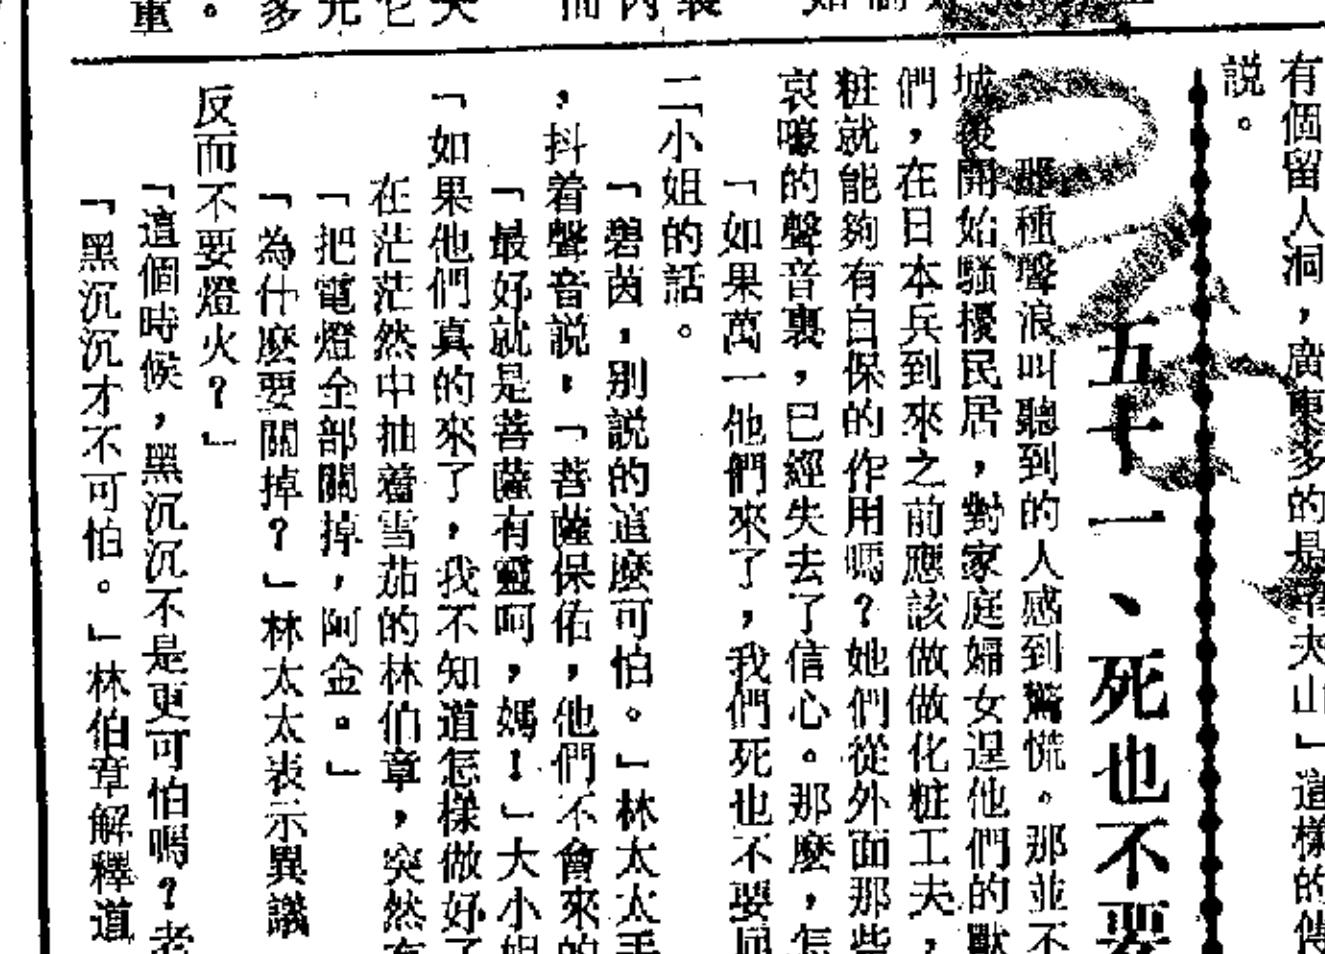 有個留人洞，廣東多的是
夫山」這樣的
説。
五十一、死也不要
那種聲浪叫聽到的人感到驚慌。那並不
城後開始騷擾民居，對家庭婦女逞他們的獸
們，在日本兵到來之前應該做做化粧工夫，
粧就能夠有自保的作用嗎？她們從外面那些
哀嚎的聲音裏，已經失去了信心。那麼，怎
「如果萬一他們來了，我們死也不要屈
二小姐的話。
「碧茵，別説的這麼可怕。」林太太手
，抖着聲音説，「菩薩保佑，他們不會來的
「最好就是菩薩有靈呵，媽！」大小姐
「如果他們真的來了，我不知道怎樣做好了
在茫茫然中抽着雪茄的林伯章，突然有
「把電燈全部關掉，阿金。」
「為什麼要關掉？」林太太表示異議
反而不要燈火？」
「這個時候，黑沉沉不是更可怕嗎？老
「黑沉沉才不可怕。」林伯章解釋道